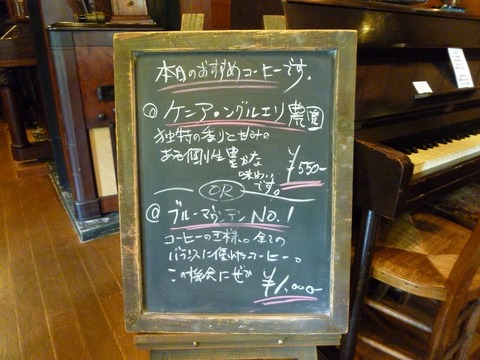 本日のおすすめコーヒーです。
◎ ケニア・ングルエリ 農園
独特の香りと甘みの
ある個性豊かな
味わいです。
¥550-
OR
◎ ブルーマウンテン No.1
コーヒーの王様。全ての
バランスに優れたコーヒー。
この機会にぜひ
¥1,000-